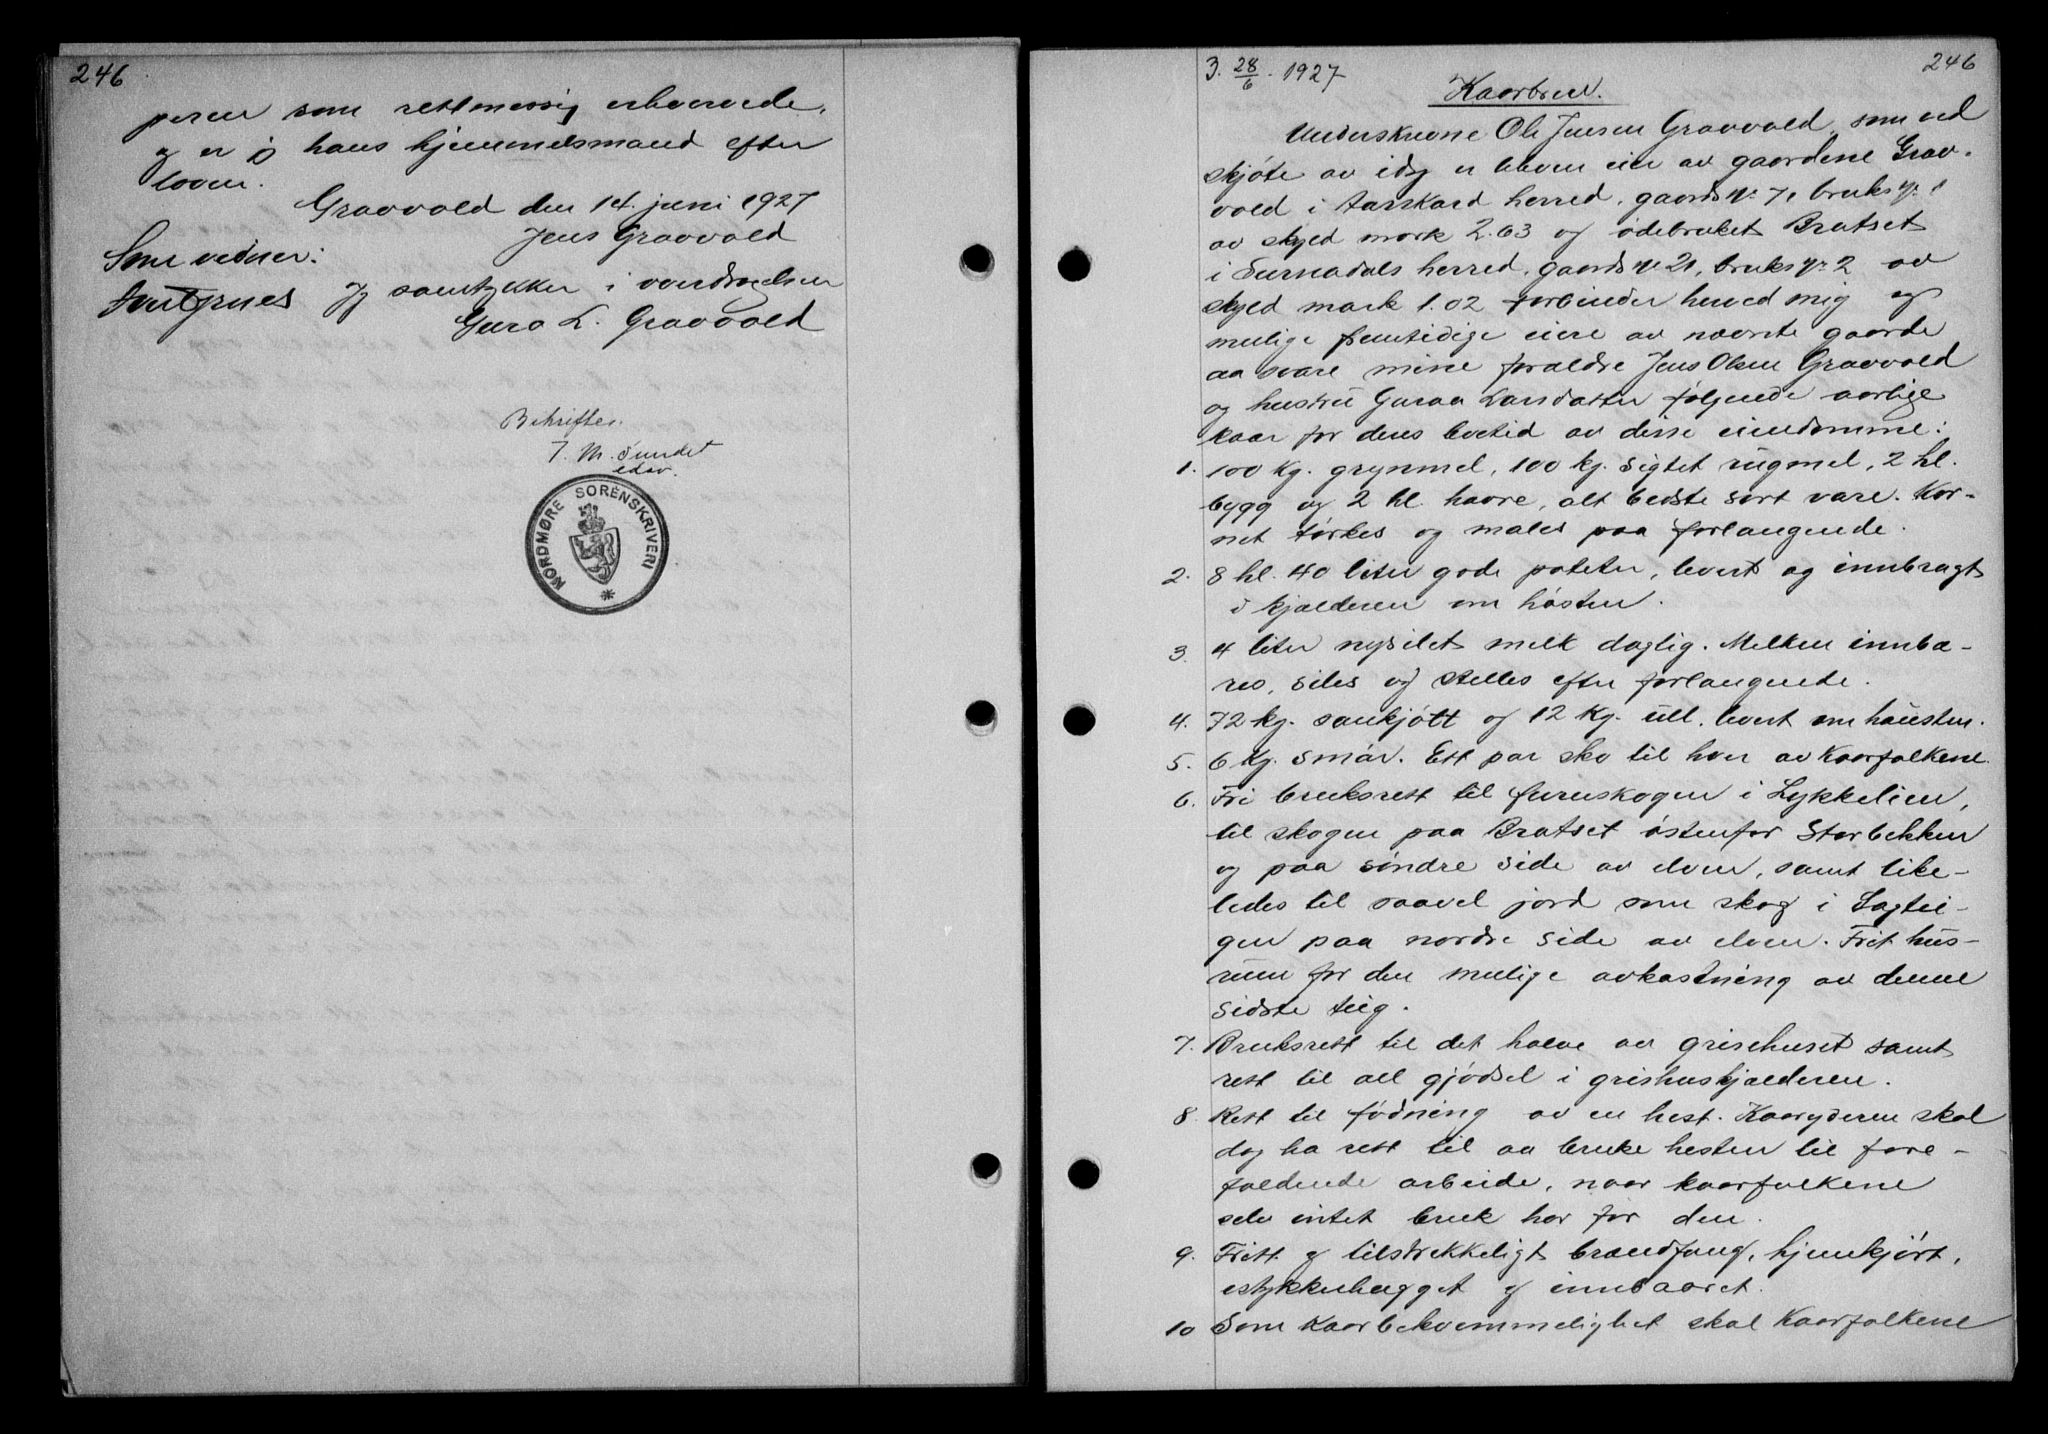 246
peren som rettmessig erhvervede,
og er jeg hans hjemmelsmand efter
loven.
Gravvold den 14. juni 1927
Jens Gravvold
Som vidner:
Jeg samtykker i overdragelsen
Guro L. Gravvold
Bekriftes.
T. M. Sundet
edsv.
NORDMØRE SORENSKRIVERI
246
3. 28/6. 1927
Kaarbrev.
Underskrevne Ole Jensen Gravvold, som ved
skjøte av idag er bleven eier av gaardene Grav-
vold i Aasskard herred, gaards nr. 71 bruks nr. 1
av skyld mark 2.63 og ødebruket Bratset
i Surnadals herred, gaards nr 21, bruks nr 2 av
skyld mark 1.02 forbinder herved mig og
mulige fremtidige eiere av nævnte gaarde
aa svare mine foraldre Jens Olsen Gravvold
og hustru Guraa Larsdatter følgende aarlige
kaar for deres levetid av disse eiendomme:
1. 100 kg. grynmel, 100 kg. sigtet rugmel, 2 hl.
bygg og 2 hl. havre, alt bedste sort vare. Kor-
net tørkes og males paa forlangende.
2. 8 hl. 40 liter gode poteter, levert og innbragt
i kjælderen om høsten.
3. 4 liter nysilet melk daglig. Melken innbæ-
res, siles og stelles efter forlangende.
4. 72 kg. saukjøtt og 12 kg. ull, levert om hausten.
5. 6 kg. smør. Ett par sko til hver av Kaarfolkene.
6. Fri bruksrett til furuskogen i Lykkelien,
til skogen paa Bratset østenfor Storbekken
og paa søndre side av elven, samt like-
ledes til saavel jord som skog i Sagtei-
gen paa nordre side av elven. Frit hus-
rum for den mulige avkastning av denne
sidste teig.
7. Bruksrett til det halve av grisehuset samt
rett til all gjødsel i grishuskjælderen.
8. Rett til fødning av en hest. Kaaryderen skal
dog ha rett til aa bruke hesten til fore-
faldende arbeide, naar kaarfolkene
selv intet bruk har for den.
9. Fritt og tilstrekkeligt brændfang, hjemkjørt,
istykkerhugget og innbaaret.
10 Som Kaarbekvemmelighet skal Kaarfolkene